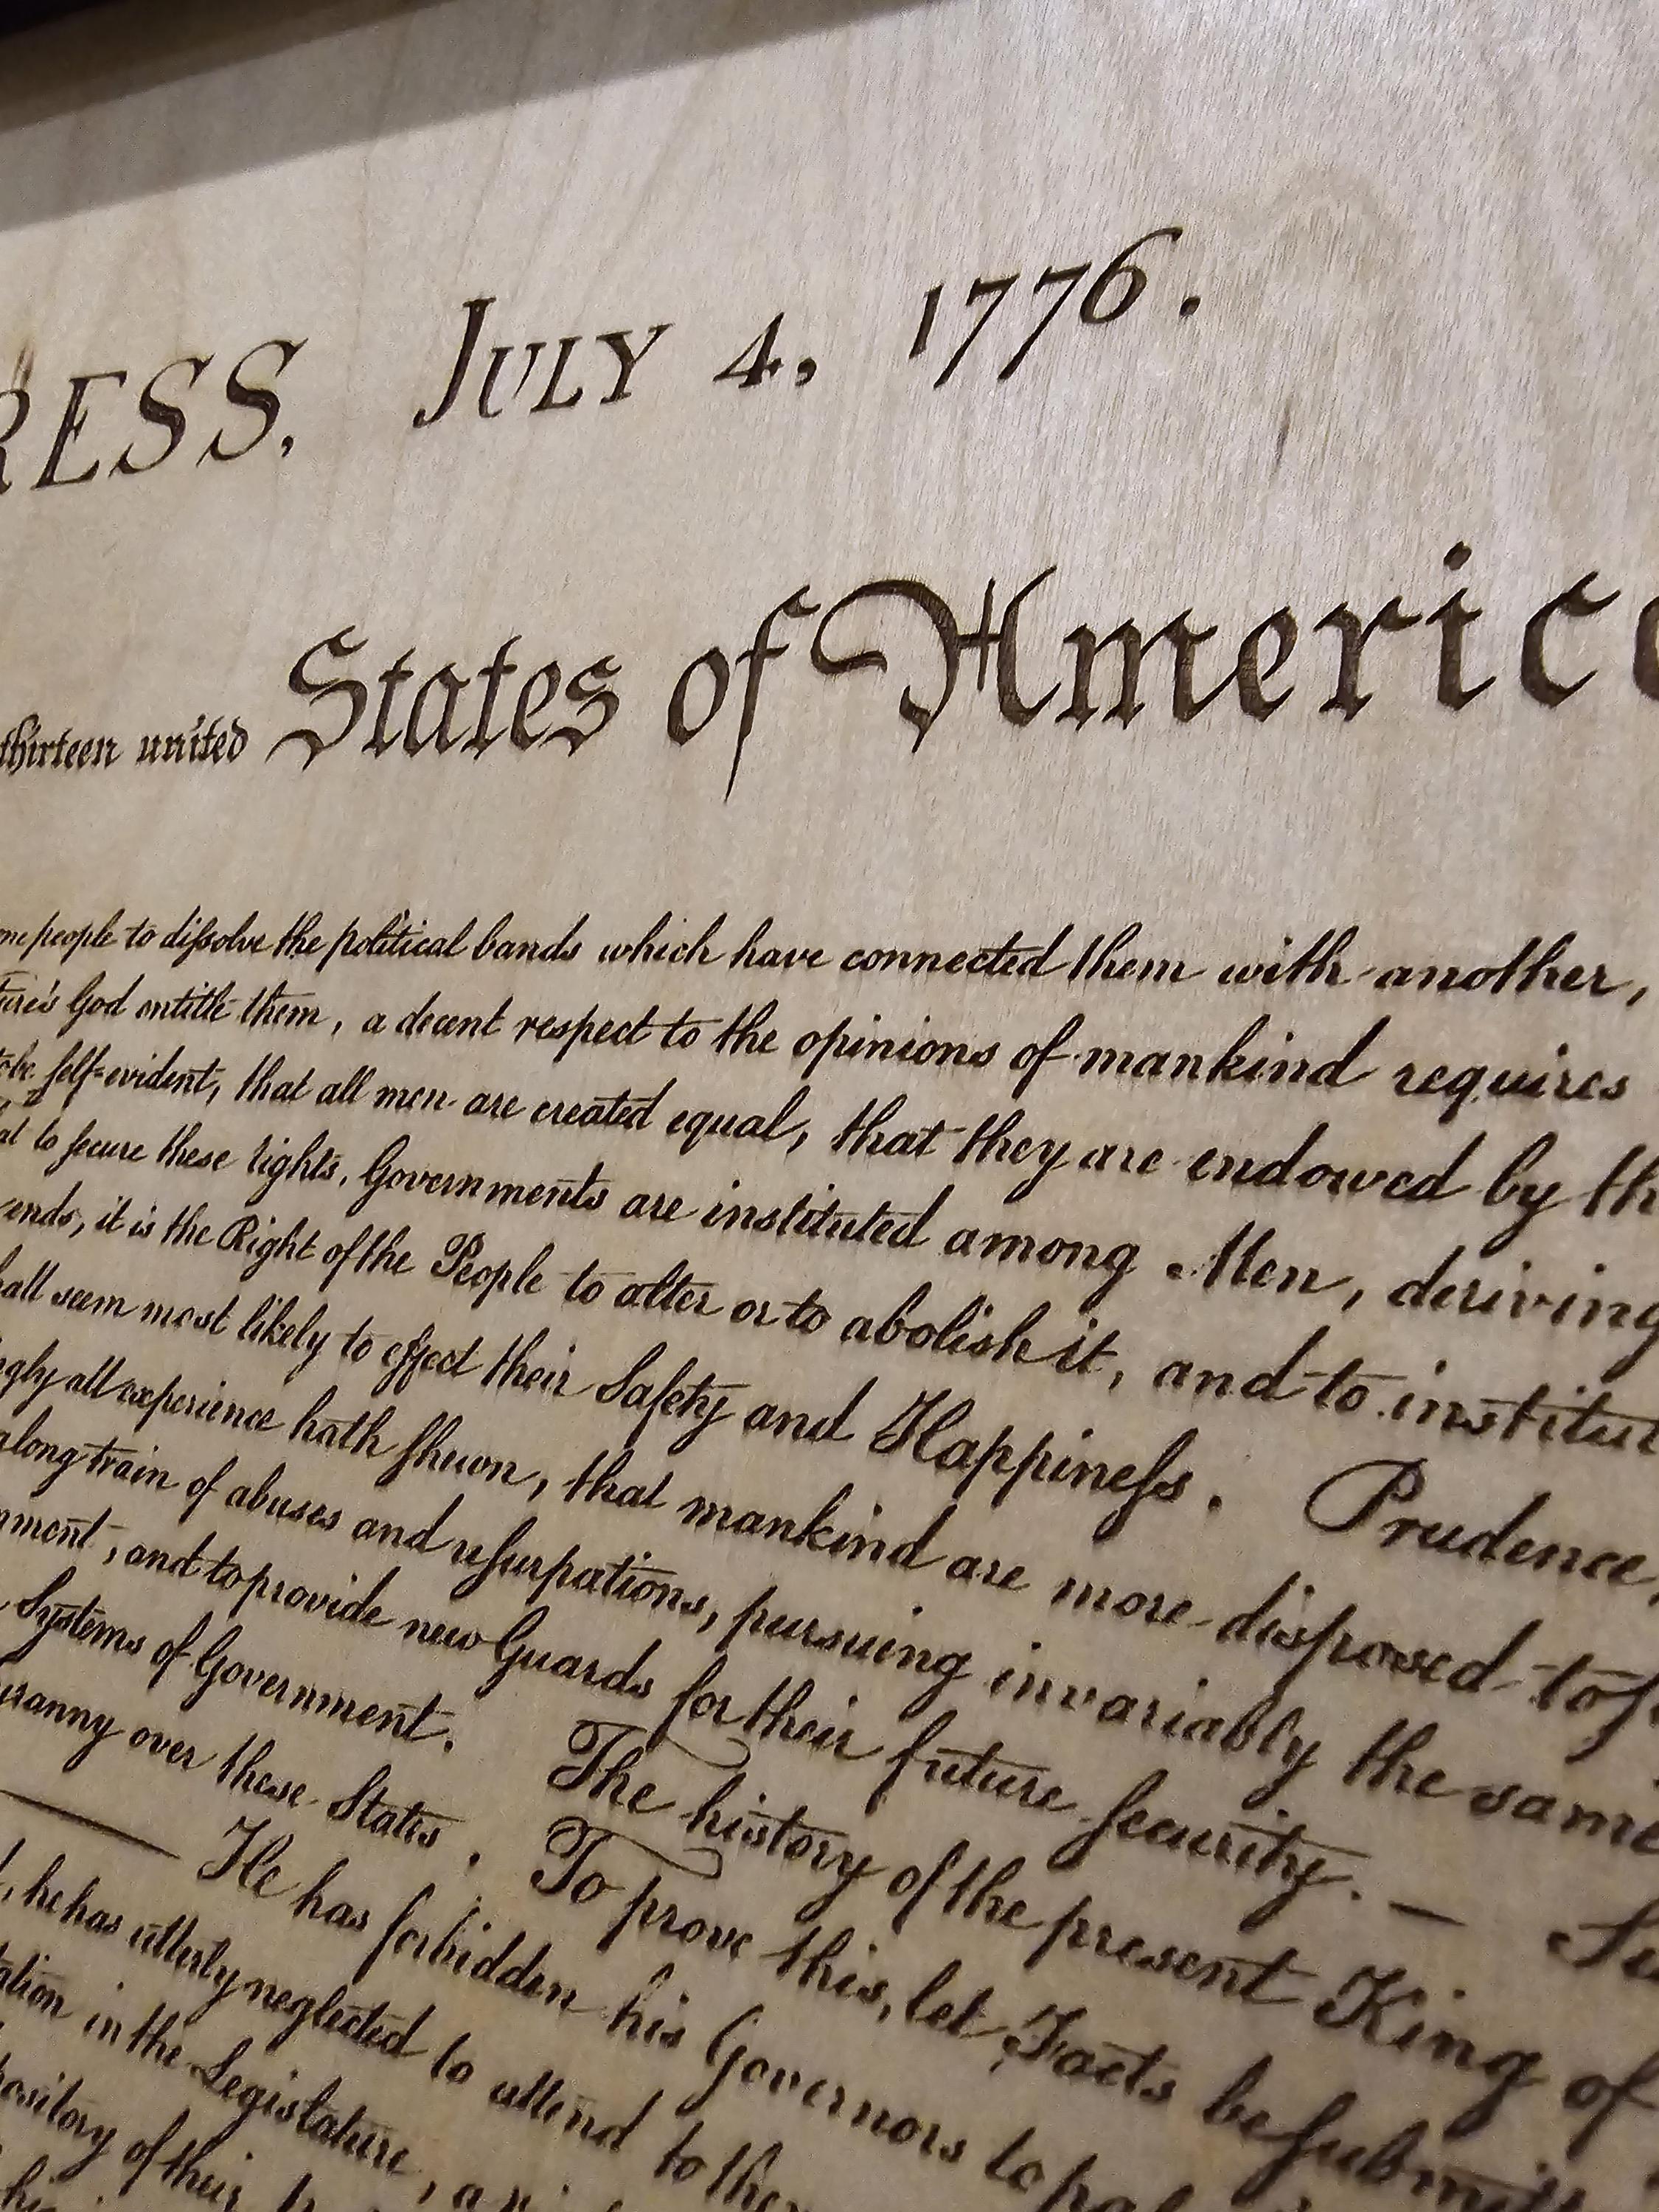 RESS, JULY 4, 1776.
thirteen united States of America
one people to dissolve the political bands which have connected them with another,
God entitle them, a decent respect to the opinions of mankind requires
to be self-evident, that all men are created equal, that they are endowed by
to secure these rights, Governments are instituted among Men, deriving
ends, it is the Right of the People to alter or to abolish it, and to institu
seem most likely to effect their Safety and Happiness. Prudence,
all experience hath shewn, that mankind are more disposed to
a long train of abuses and usurpations, pursuing invariably the same
nment, and to provide new Guards for their future security. — Su
Systems of Government. The history of the present King of
yranny over these States. To prove this, let Facts be submit
— He has forbidden his Governors to pa
he has utterly neglected to attend to them
tation in the Legislature, a
pository of their